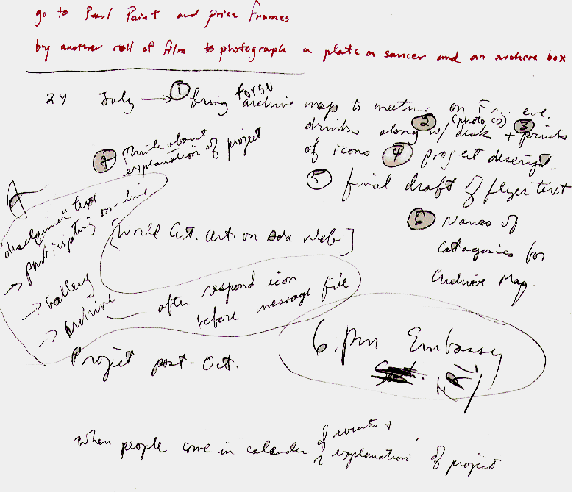 go to Pearl Paint and price frames
by another roll of film to photograph a plate or saucer and an archive box
24 July → ① bring archive maps to meeting on Fri. eve.
for
drinks along w/ disk + prints
② (photo CD) ③
of icons ④ project descript.
⑤ final draft of flyer text
⑥ Names of
categories for
Archive Mag.
Think about
explanation of project
A
disclaimer text
→ participating on-line
→ gallery
→ archive — after respond icon
before message file
[World Cit. Art on Ada Web]
Project post Oct.
6. pm Embassy
When people come in calander of events +
explanation of project